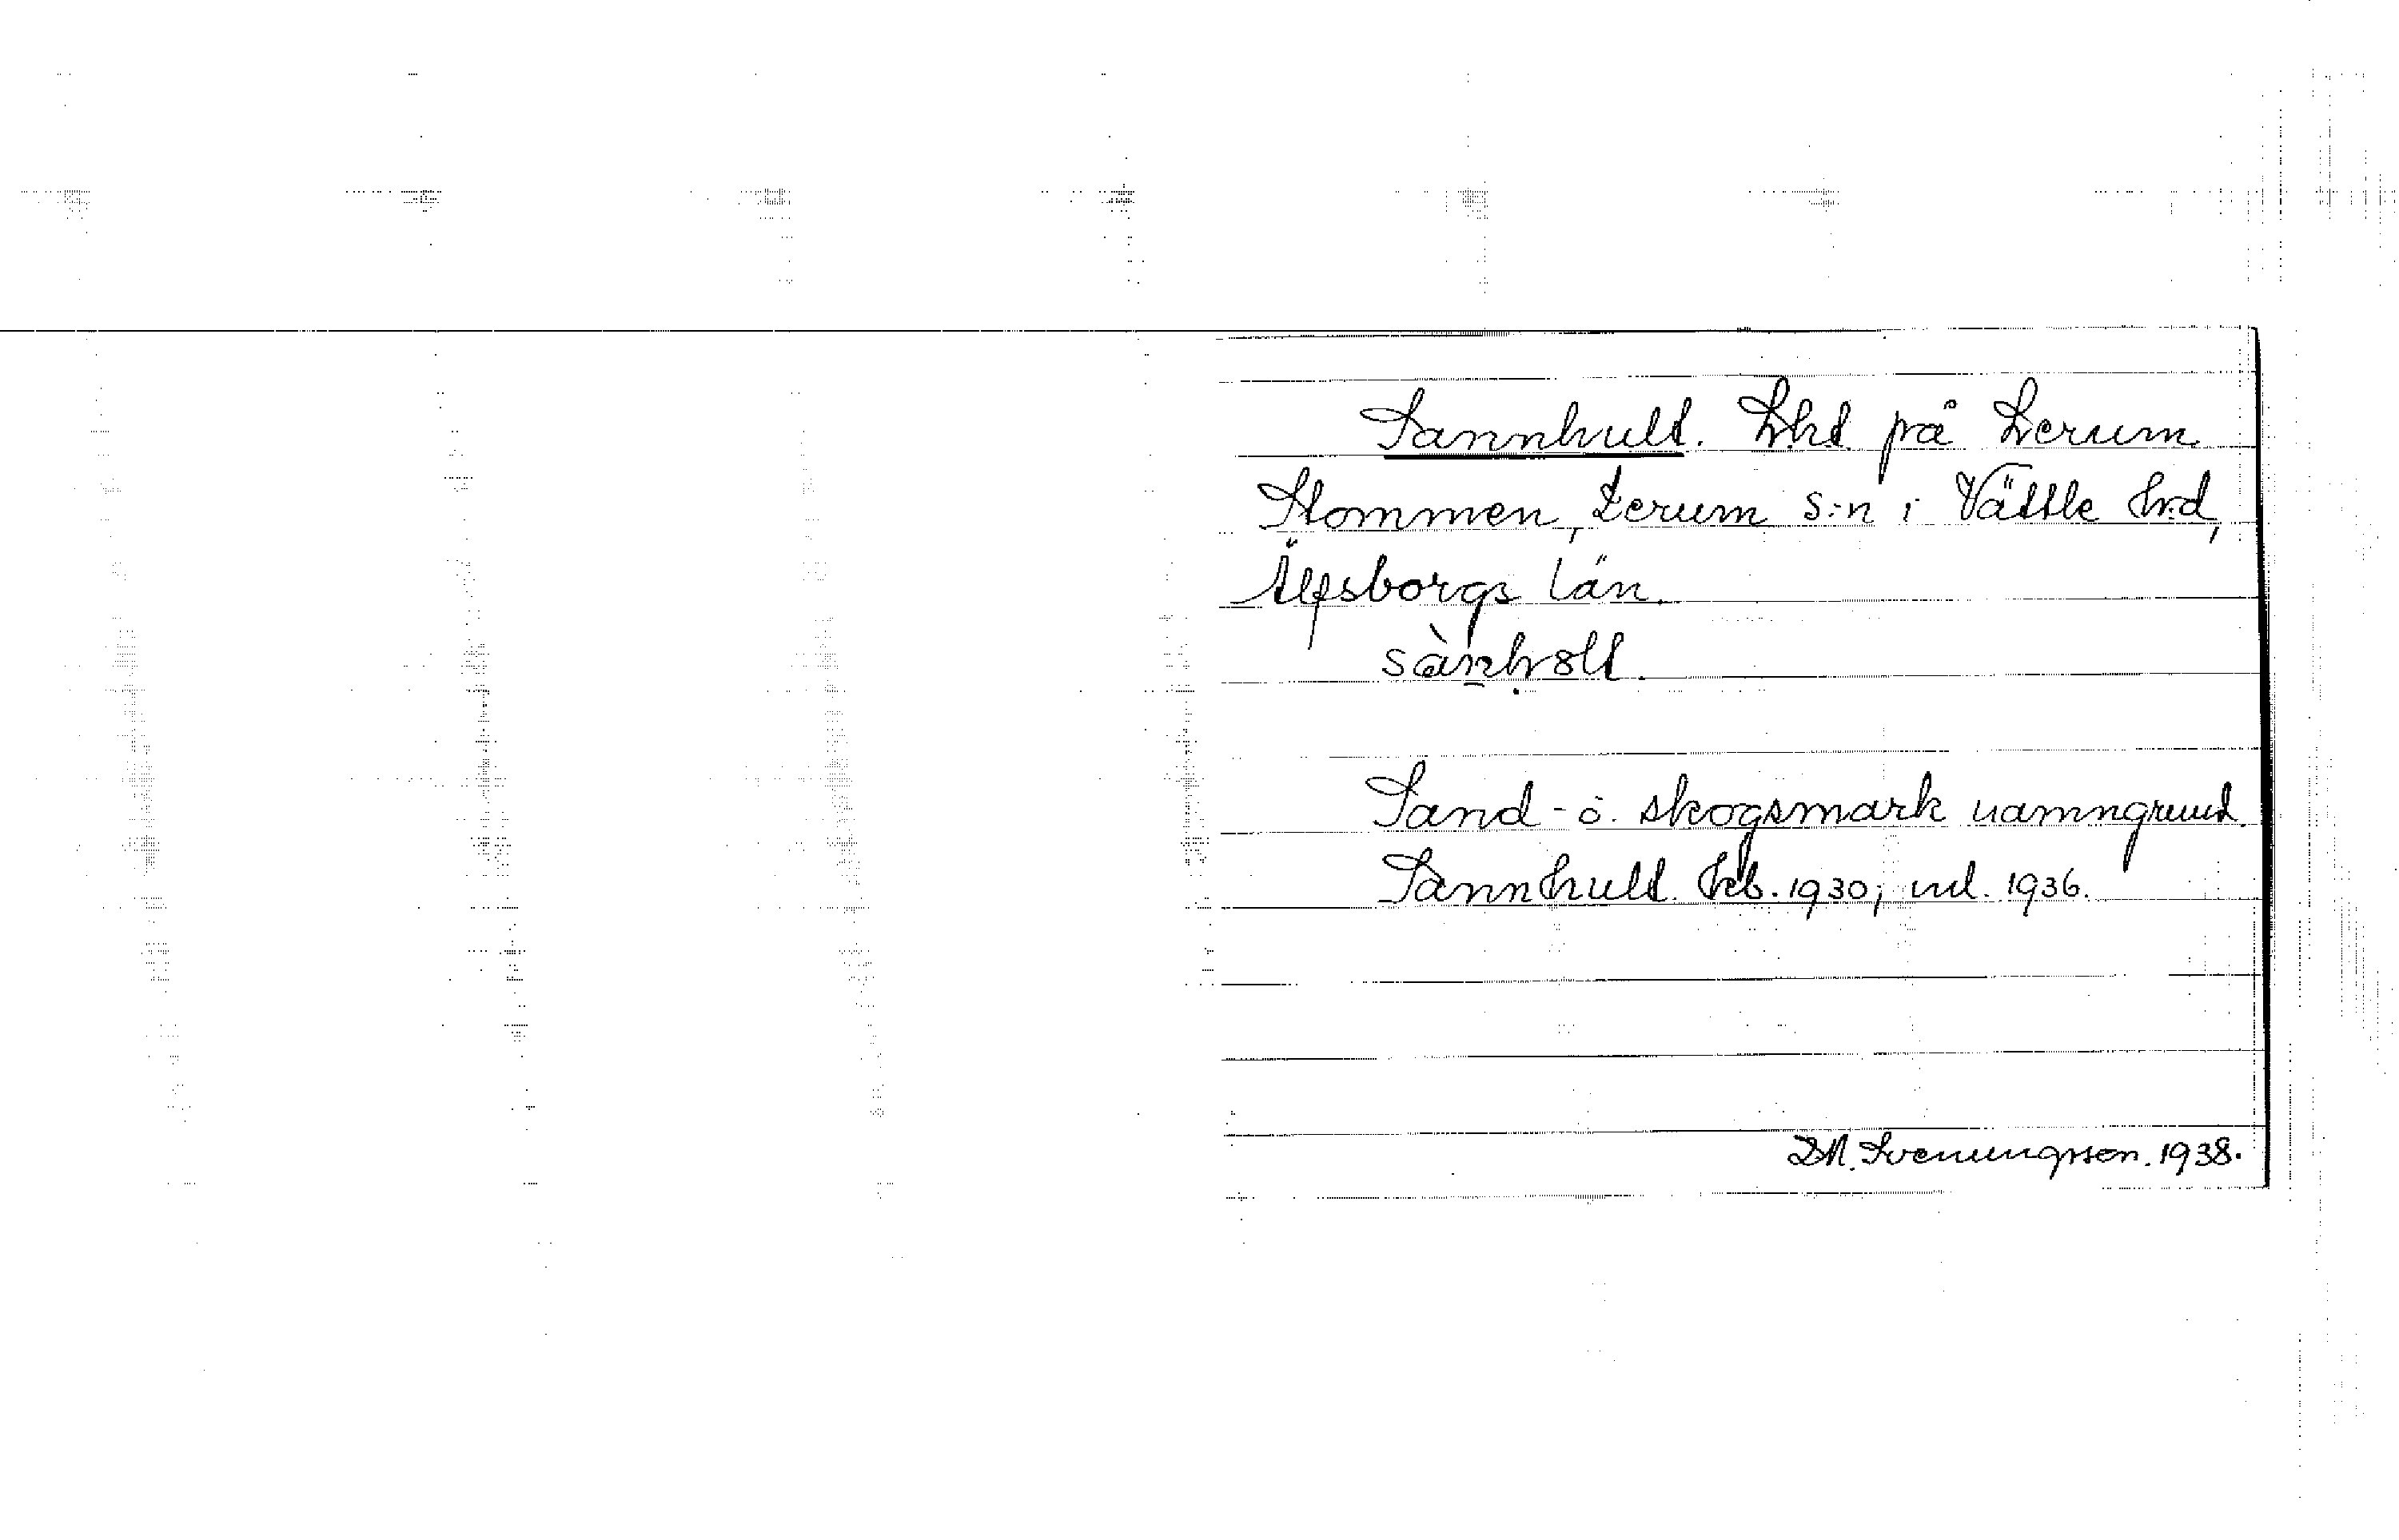 Sannhult. Lht på Lerum
Stommen, Lerum s:n i Vättle hd,
Älfsborgs län.
Sand- o. skogsmark namngrund.
Sannhult. Jrb. 1930; ml. 1936.
D.M. Svenungsson. 1938.